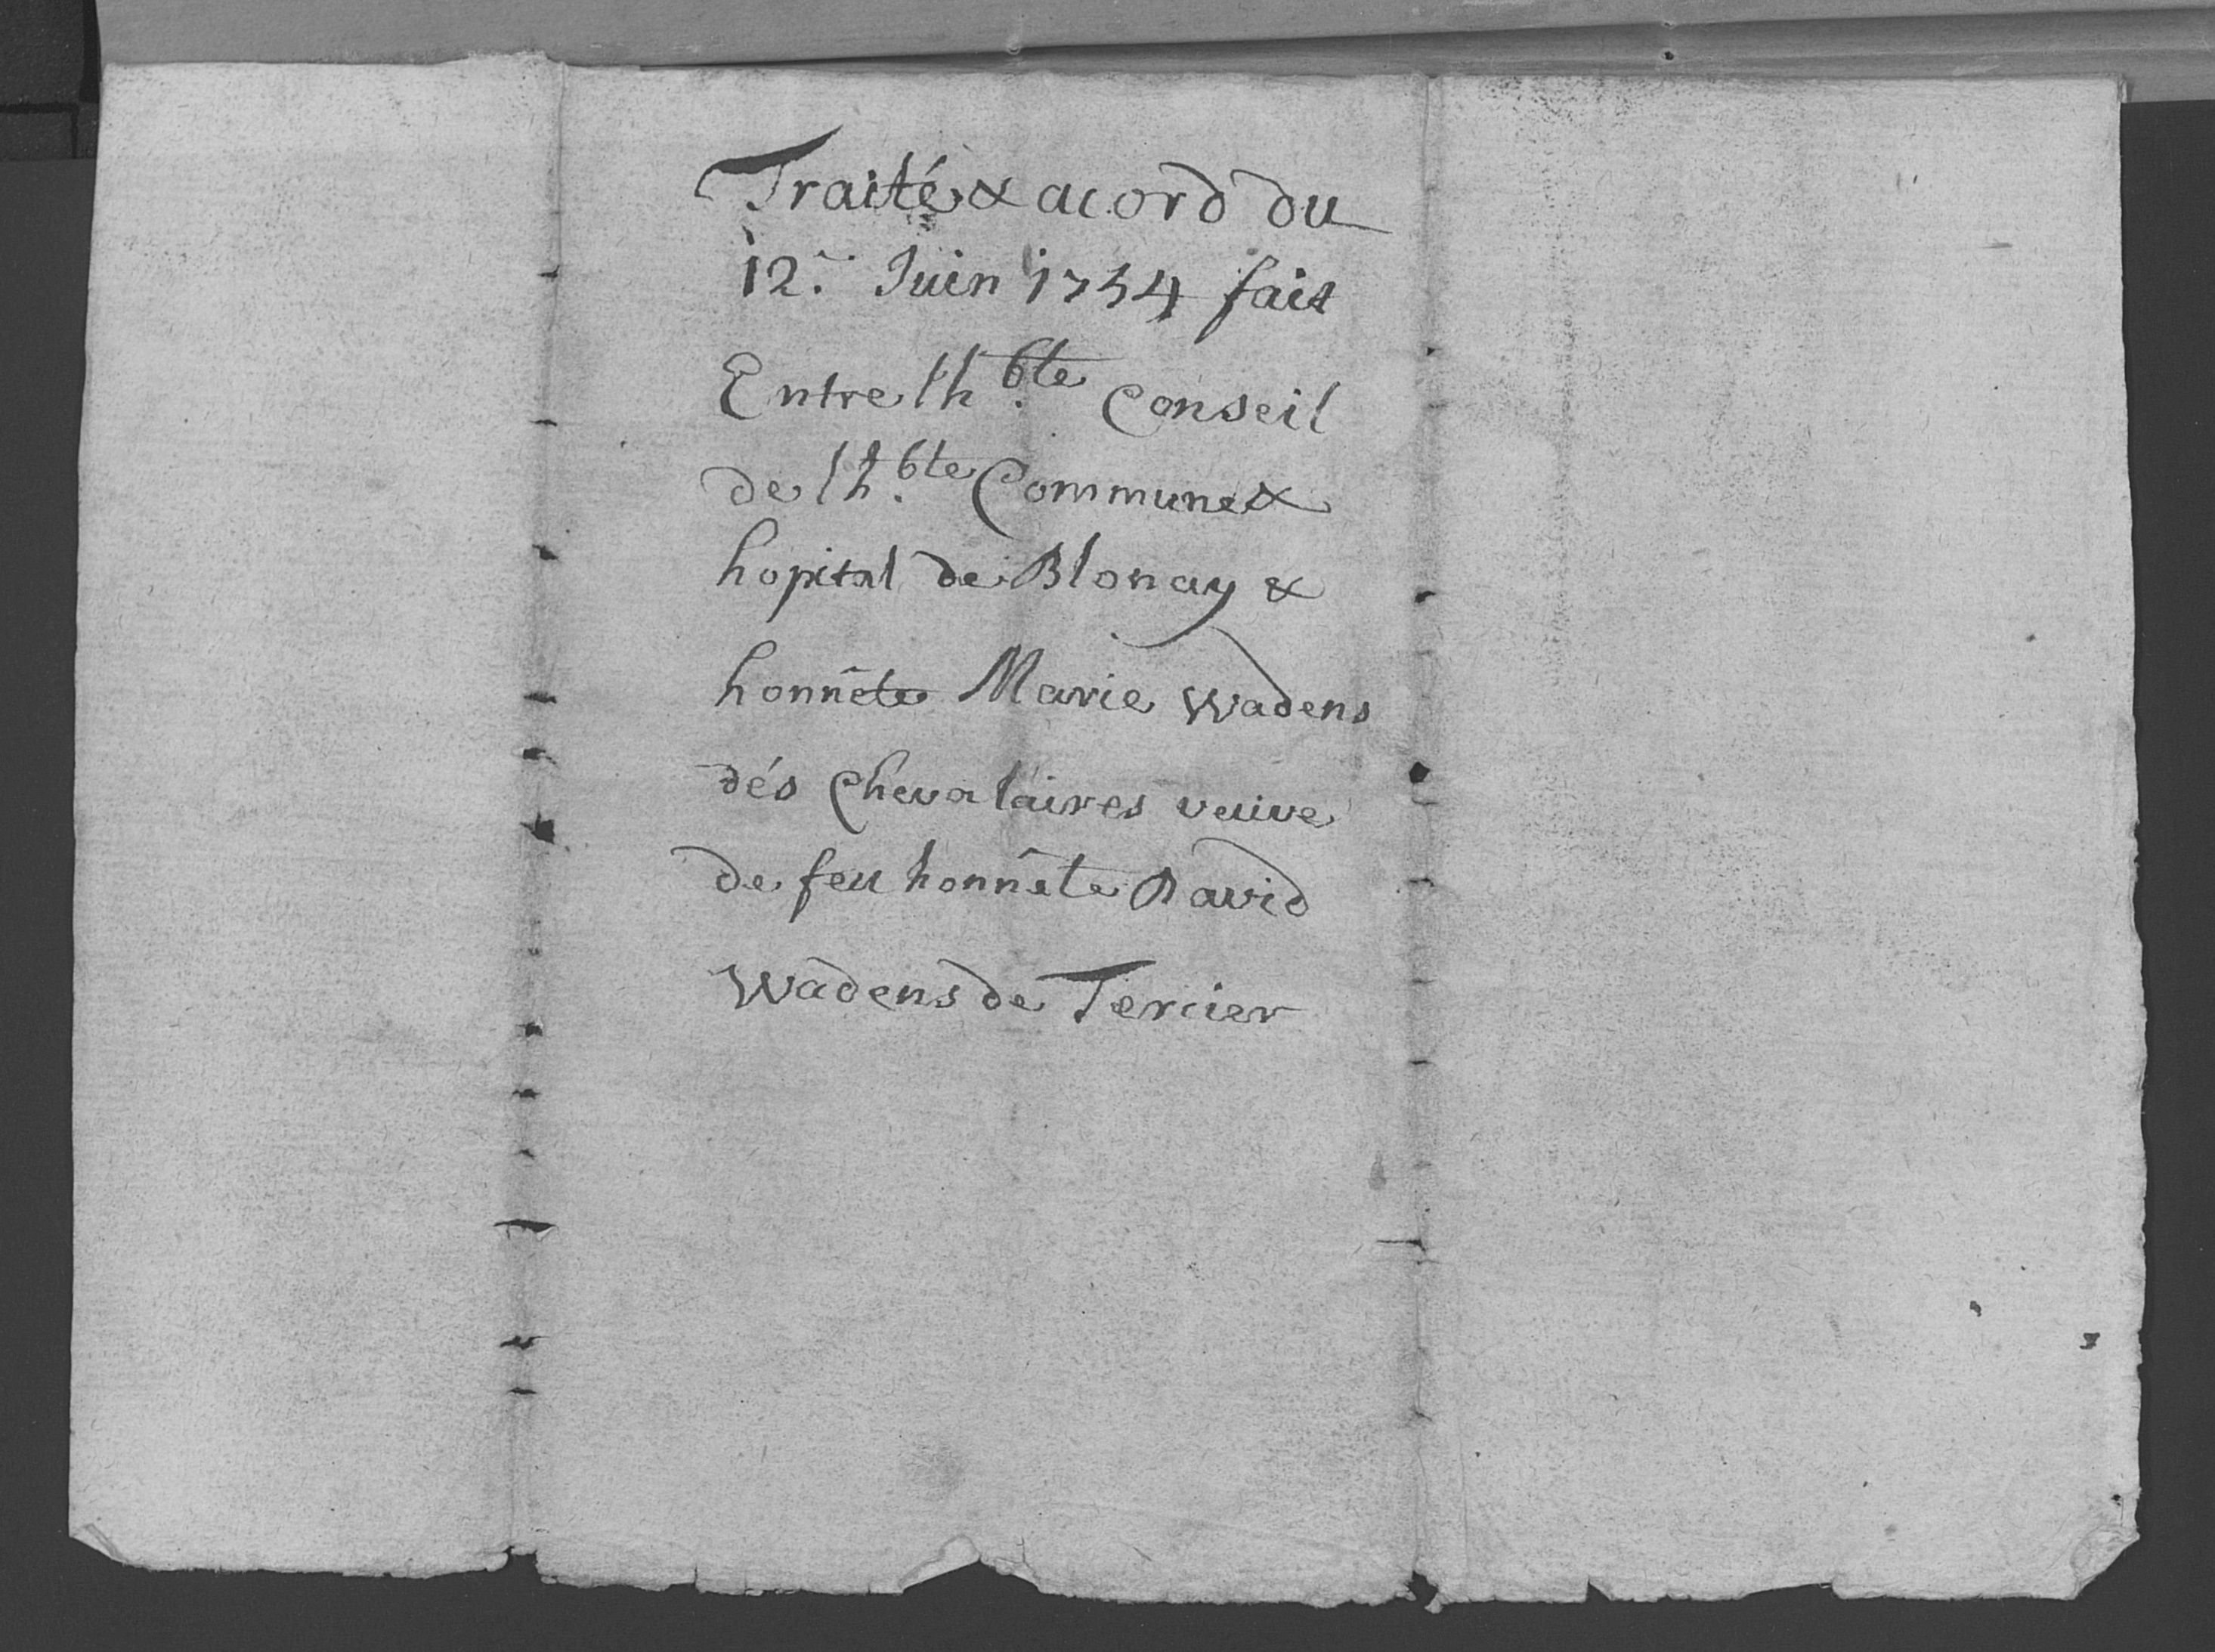 Traité & acord du
12.e Juin 1754 fait
Entre lh.ble Conseil
de lh.ble Commune &
hopital de Blonay &
honnête Marie Wadens
dés Chevalaires veuve
de feu honnête David
Wadens de Tercier